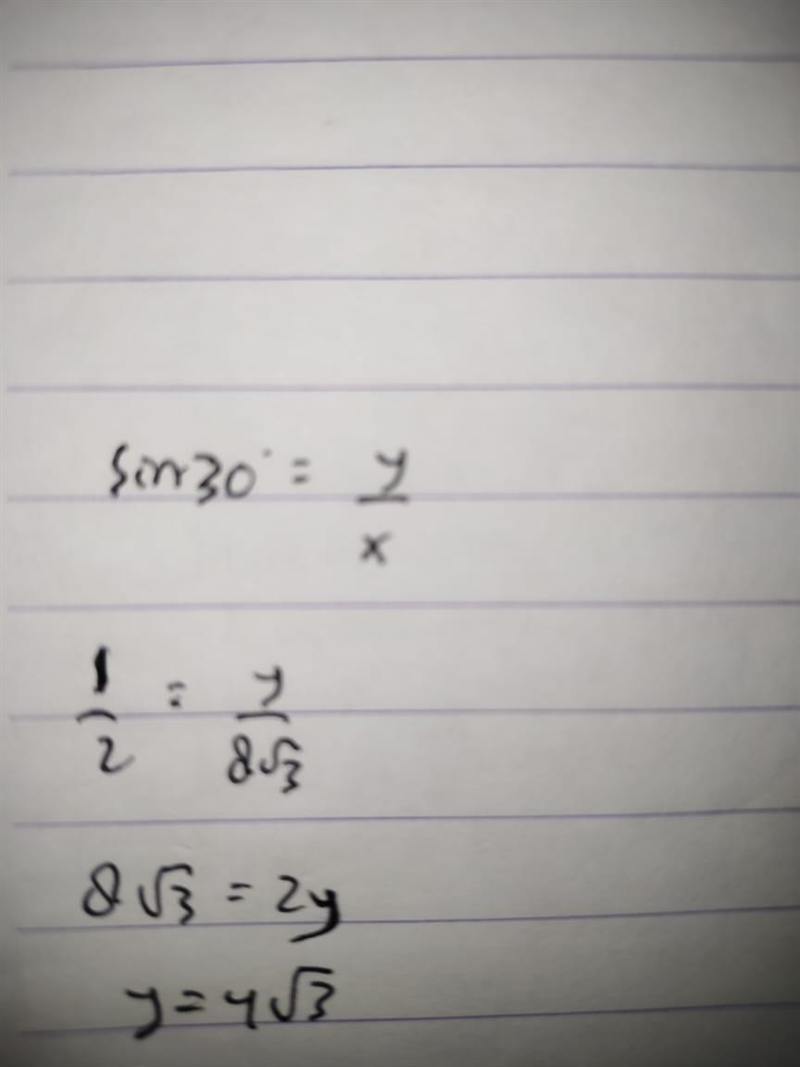 sin30° = y/x
1/2 = y/8√3
8√3 = 2y
y = 4√3